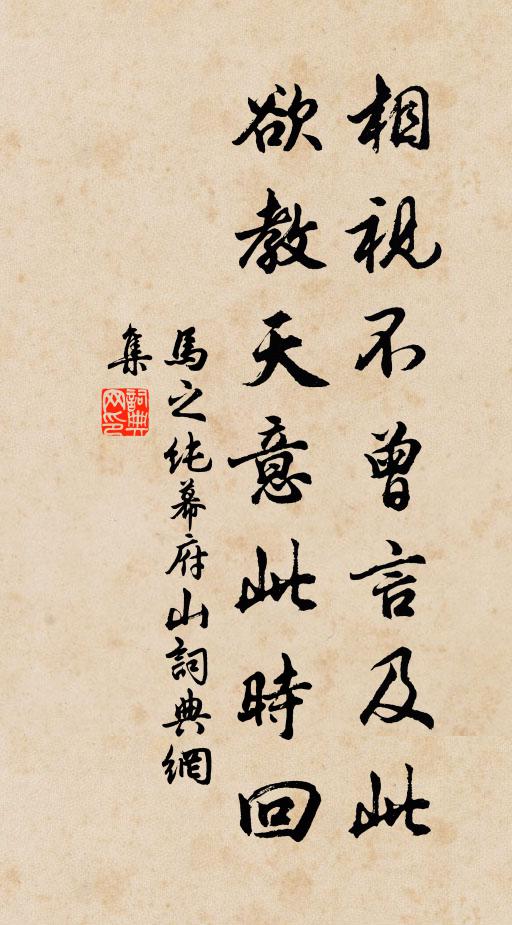 相視不曾言及此
欲教天意此時回
馬之纯幕府山詞典網
集
詞典
网印